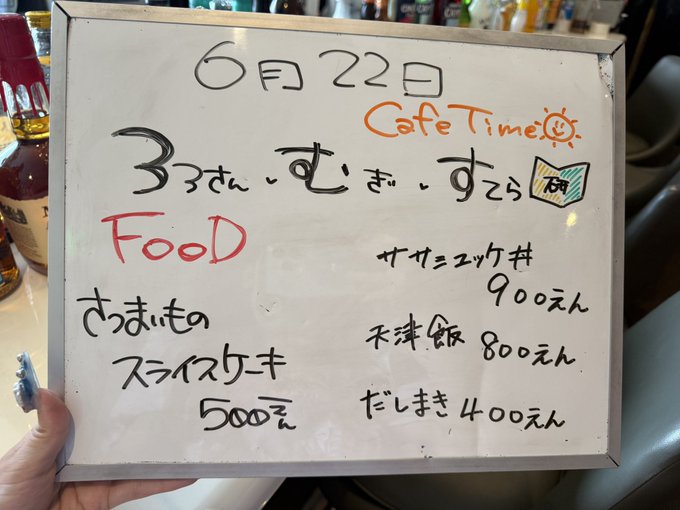 6月22日
Cafe Time
33さん、むぎ、すてら 研
FooD
さつまいもの
スライスケーキ
500えん
ササミユッケ丼
900えん
天津飯 800えん
だしまき 400えん